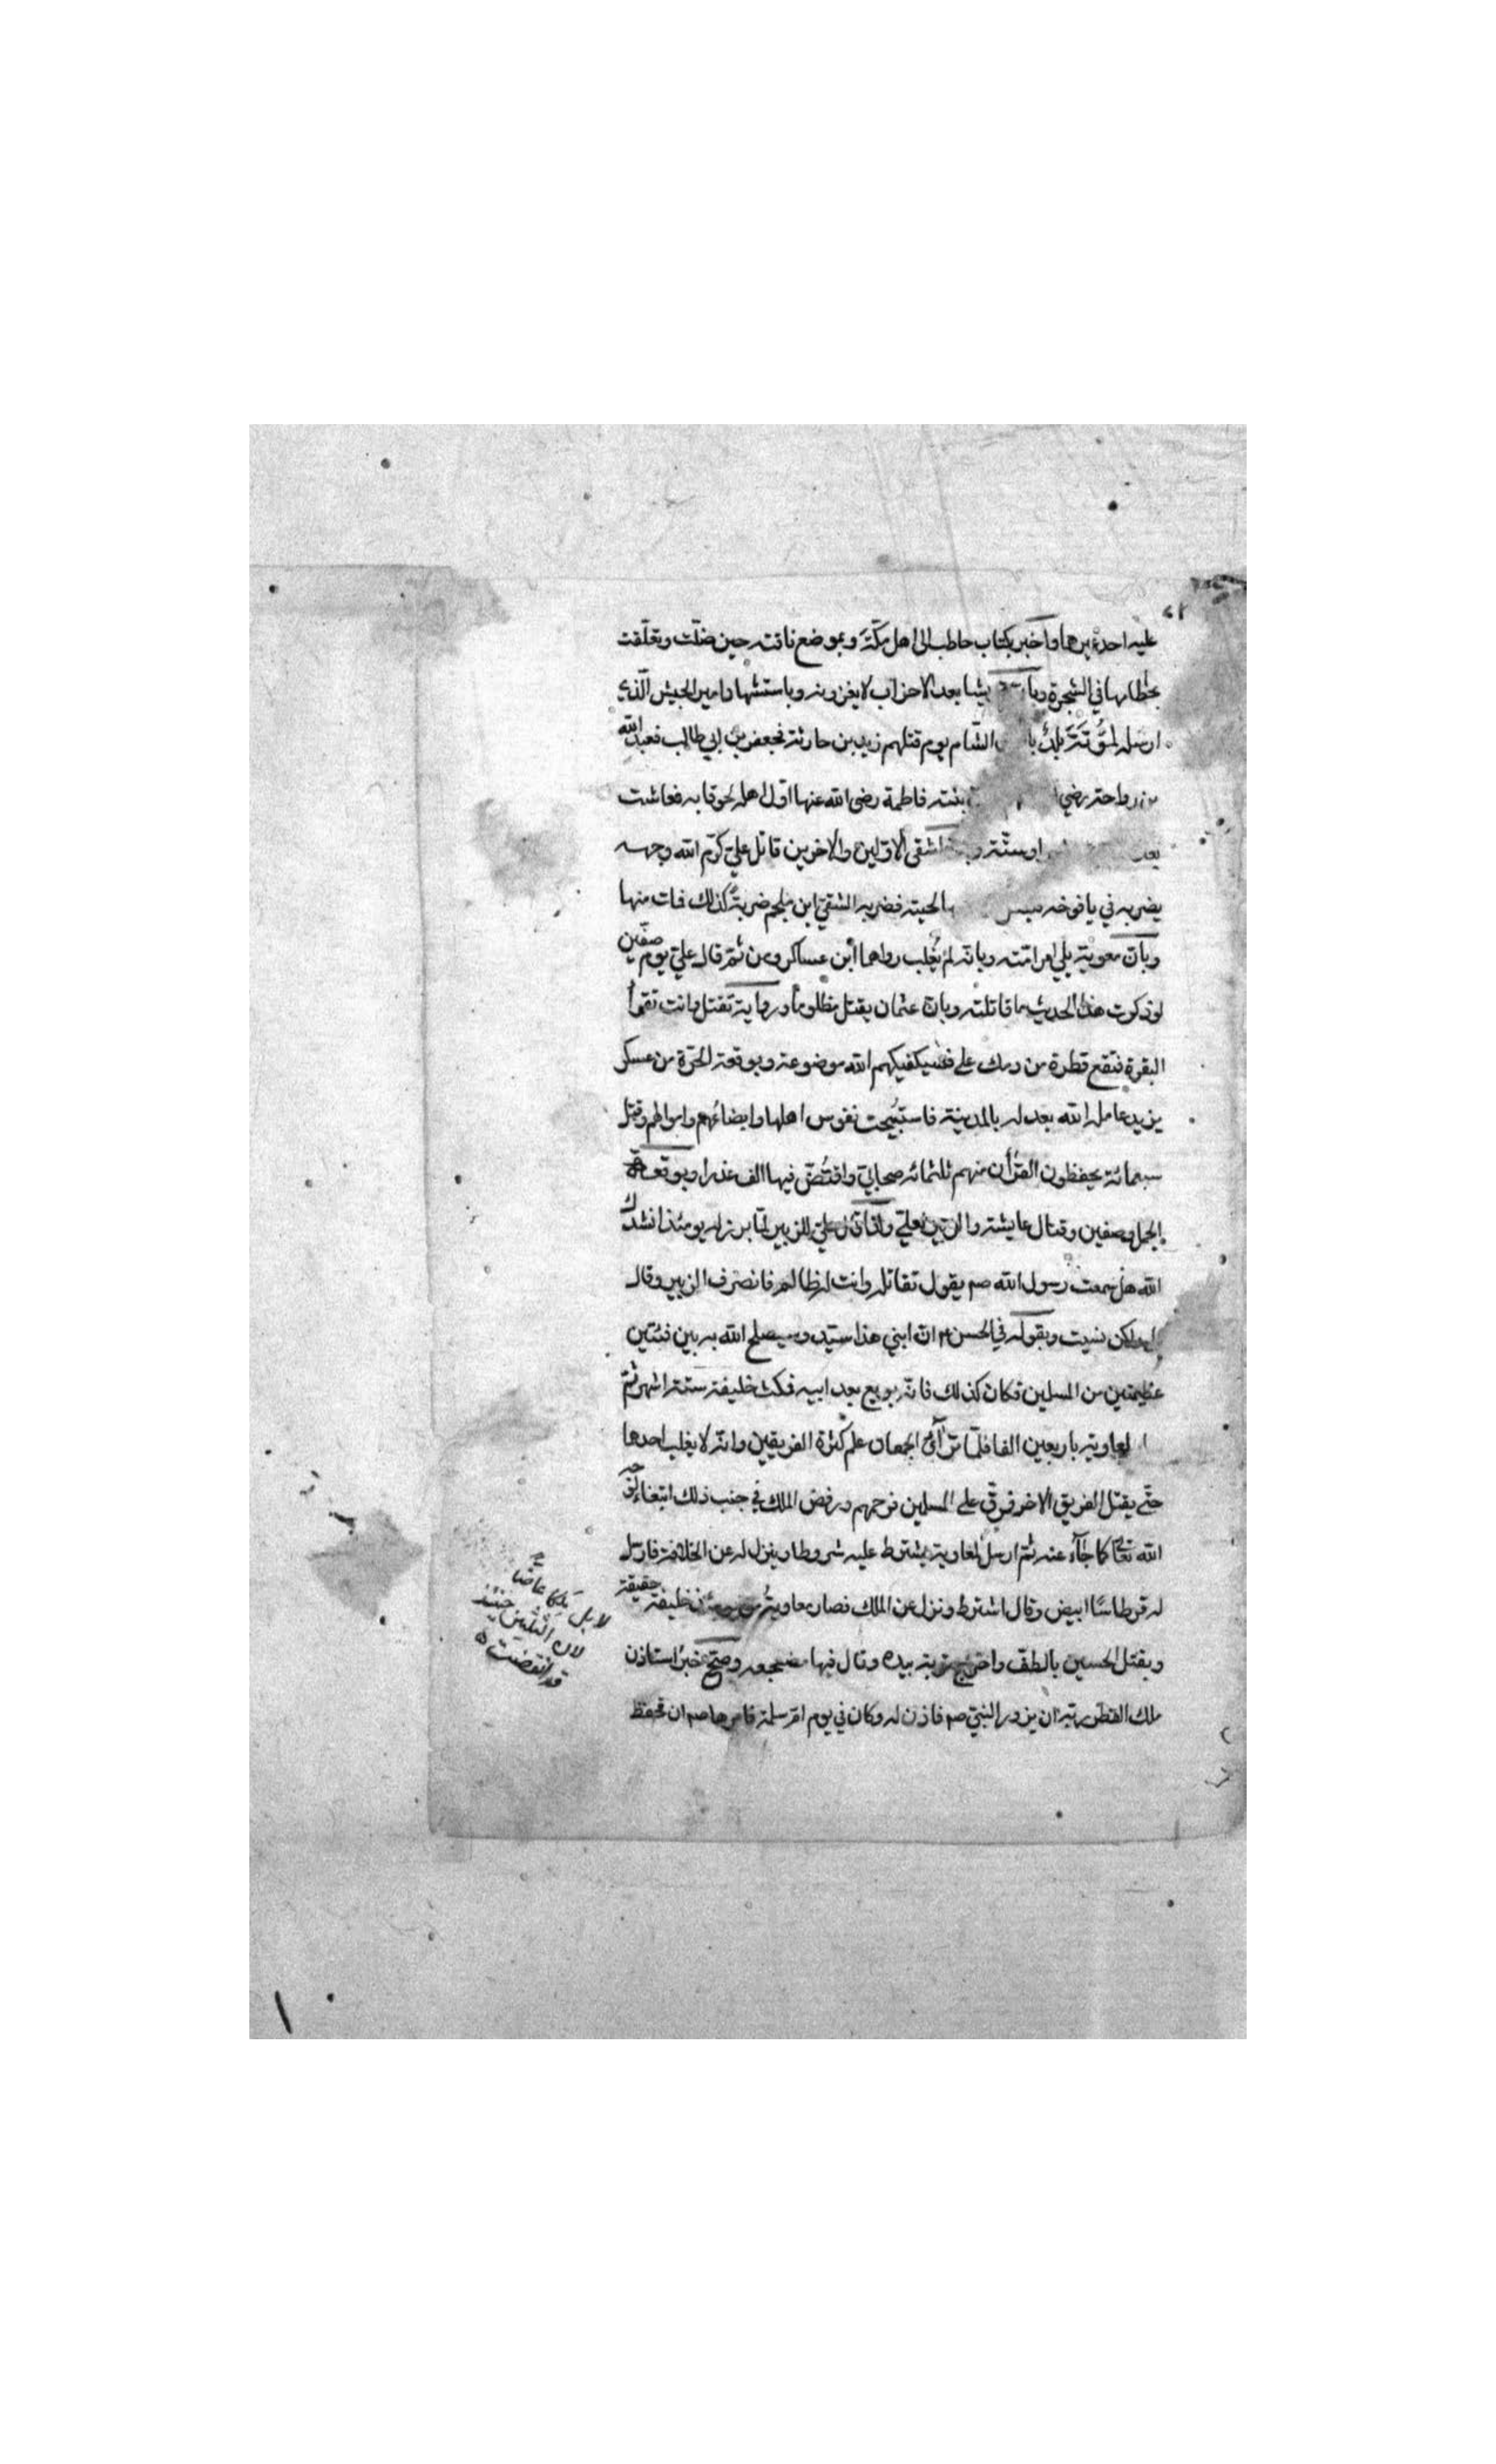 عليه احد غيرها واخبر بكتاب حاطب الى اهل مكّة وبموضع ناقته حين ضلّت وتعلّقت
بخطامها في الشجرة وبان يشا بعد الاحزاب لا يغزونه وباستشهاد امير الجيش الّذي
ارسله لمؤتة بالشّام يوم قتلهم زيد بن حارثة فجعفر بن ابي طالب فعبد الله
بن رواحة رضي بنته فاطمة رضى الله عنها اوّل اهله لحوقا به فعاشت
بعد او ستّة اشقى الاوّلين والاخرين قاتل علي كرّم الله وجهه
يضربه في يافوخه لحيته فضربه الشقي ابن ملجم ضربة كذلك فمات منها
وبانّ معوية يلي امر امّته وبانّه لم يُغلب رواهما ابن عساكر ومن ثمّ قال علي يوم صفّين
لو ذكرت هذا الحديث ما قاتلته وبانّ عثمان يقتل مظلوما ورواية تقتل وانت تقرأ
البقرة فتقع قطرة من دمك على فسيكفيكهم الله موضوعة وبوقعة الحرّة من عسكر
يزيد عامله الله بعدله بالمدينة فاستبيحت نفوس اهلها وابضاعهم واموالهم وقتل
سبعمائة يحفظون القرأن منهم ثلثمائه صحابيّ وافتُضّ فيها الف عذراء وبوقعة
الجمل وصفين وقتال عايشة والزبير لعلي ولذا قال علي للزبير لمّا برز له يومئذ انشدك
الله هل سمعت رسول الله صم يقول تقاتله وانت له ظالم فانصرف الزبير وقال
بلى ولكن نسيت وبقوله في الحسن انّ ابني هذا سيّد وسيصلح الله به بين فئتين
عظيمتين من المسلمين فكان كذلك فانّه بويع بعد ابيه فمكث خليفة ستة اشهر ثمّ
لمعاوية باربعين الفا فلمّا ترآئ الجمعان علم كثرة الفريقين وانّه لا يغلب احدها
حتّى يقتل الفريق الاخر فرقّ على المسلمين فرحمهم ورفض الملك في جنب ذلك ابتغاء لوجه
الله تعالى كما جآء عنه ثمّ ارسل لمعاوية يشترط عليه شروطا وينزل له عن الخلافة فارسل
له قرطاسًا ابيض وقال اشترط ونزل عن الملك فصار معاوية من يومئذ خليفة حقيقة
وبقتل الحسين بالطفّ واخرج تربته بيده وقال فيها مضجعه وصحّ خبر استاذن
ملك القطر ربّه ان يزور النبيّ صم فاذن له وكان في يوم امّ سلمة فامرها صم ان تحفظ
لا بل ملكا عاضّا
لان الثلثين حينئذ
قد انقضت